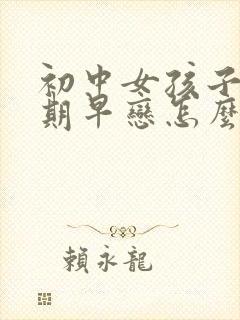 初中女孩子
期早戀怎麼
賴永龍